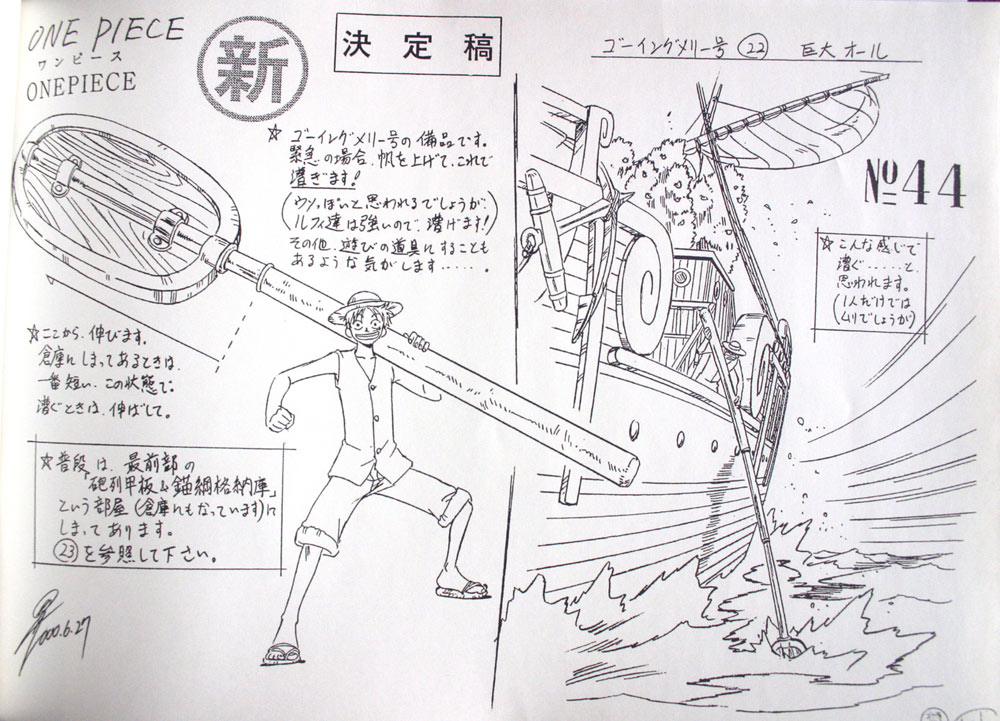 ONE PIECE
ワンピース
ONEPIECE
新
決定稿
ゴーイングメリー号 ㉒ 巨大オール
☆ ゴーイングメリー号の備品です。
緊急の場合、帆を上げて、これで
漕ぎます!
(ウソっぽいと思われるでしょうが、
ルフィ達は強いので、漕げます!)
その他、遊びの道具にすることも
あるような気がします……。
No 44
☆こんな感じで
漕ぐ……と、
思われます。
(1人だけでは
ムリでしょうが)
☆ここから、伸びます。
倉庫にしまってあるときは、
一番短い、この状態で。
漕ぐときは、伸ばして。
☆普段は、最前部の
「砲列甲板&錨綱格納庫」
という部屋(倉庫にもなっています)に
しまってあります。
㉓を参照して下さい。
2000.6.27